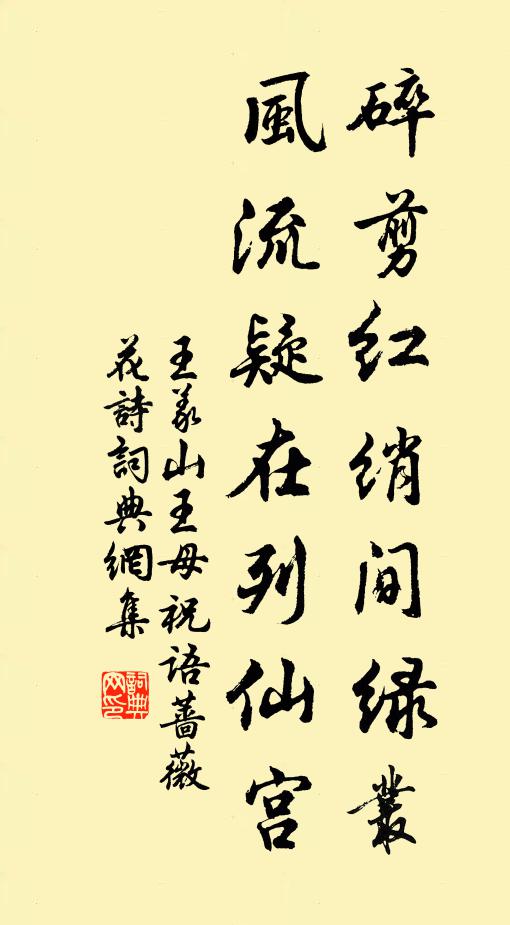 碎剪红绡间绿叢
風流疑在列仙宫
王義山王母祝语薔薇
花詩詞典網集
詞典网印